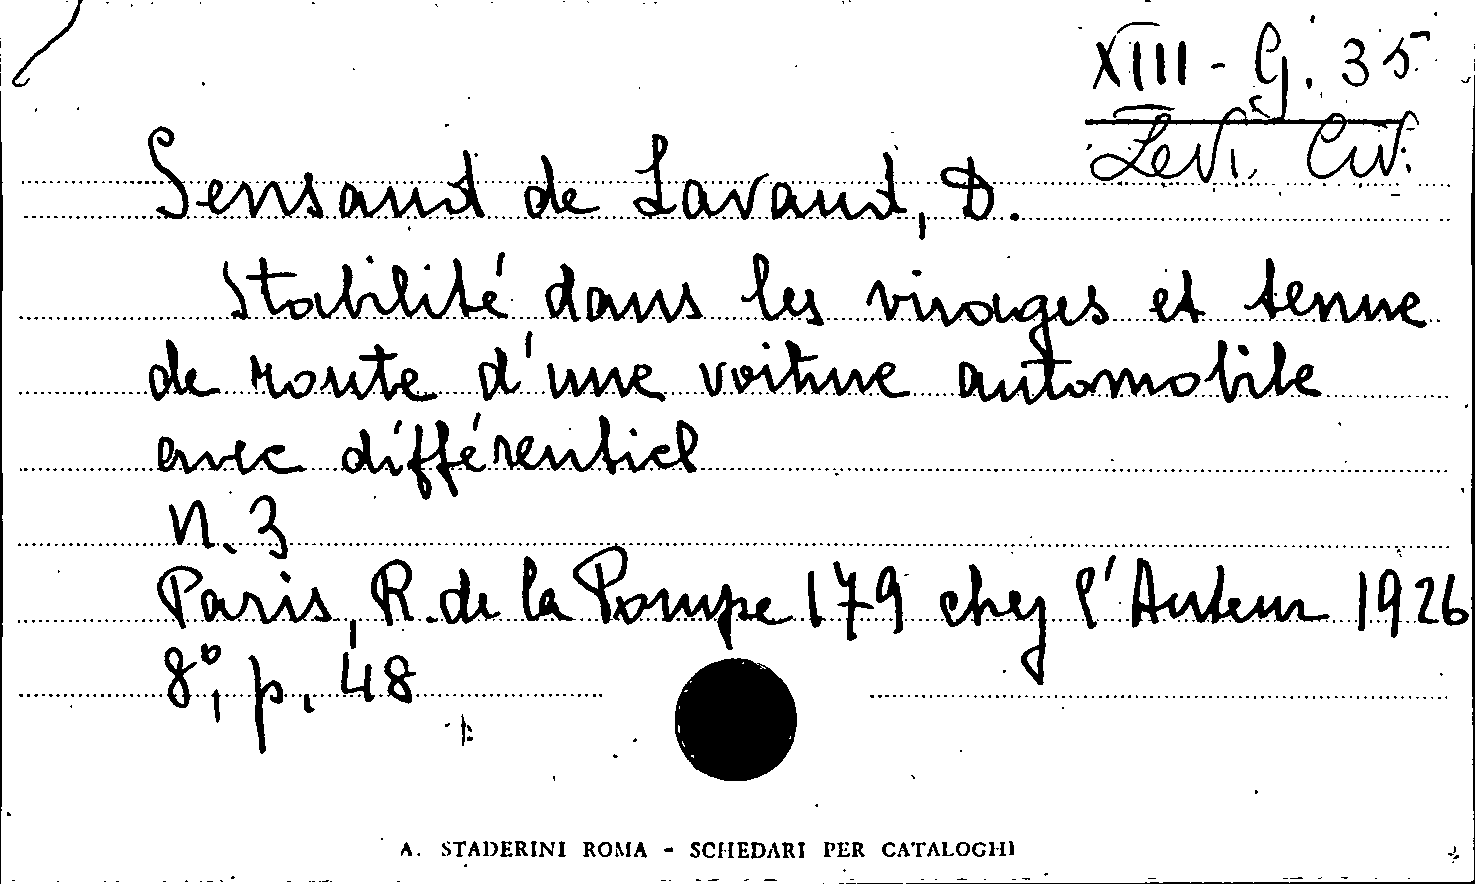 XIII - G. 35
Levi. Civ.
Sensaud de Lavaud, D.
Stabilité dans les virages et tenue
de route d'une voiture automobile
avec différentiel
N. 3
Paris, R. de la Pompe 179 chez l'Auteur 1926
8°, p. 48
A. STADERINI ROMA - SCHEDARI PER CATALOGHI